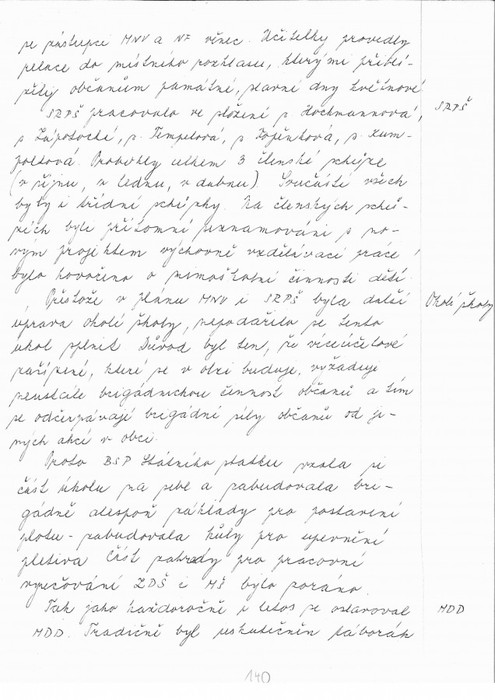 se zástupce MNV a NF věnec. Učitelky provedly
relace do místního rozhlasu, kterými přiblí-
žily občanům památné, slavné dny květnové
SRPŠ pracovalo ve složení s. Hochmannová, SRPŠ
s. Zápotocká, s. Templová, s. Kum-
poltová. Proběhly celkem 3 členské schůze
(v říjnu, v lednu, v dubnu). Součástí všech
byly i třídní schůzky. Na členských schů-
zích byli přítomní seznamováni s no-
vým projektem výchovně vzdělávací práce i
bylo hovořeno o mimoškolní činnosti dětí.
Přestože v plánu MNV i SRPŠ byla další Okolí školy
uprava okolí školy, nepodařilo se tento
úkol splnit. Důvod byl ten, že víceúčelové
zařízení, které se v obci buduje, vyžaduje
neustále brigádnickou činnost občanů a tím
se odčerpávají brigádní síly občanů od ji-
ných akcí v obci.
Proto BSP Státního statku vzala si
část úkolu na sebe a zabudovala bri-
gádně alespoň základy pro postavení
plotu - zabudovala kůly pro upevnění
pletiva. Část zahrady pro pracovní
vyučování ZDŠ i MŠ bylo zoráno.
Tak jako každoročně i letos se oslavoval MDD
MDD. Tradičně byl uskutečněn táborák
140